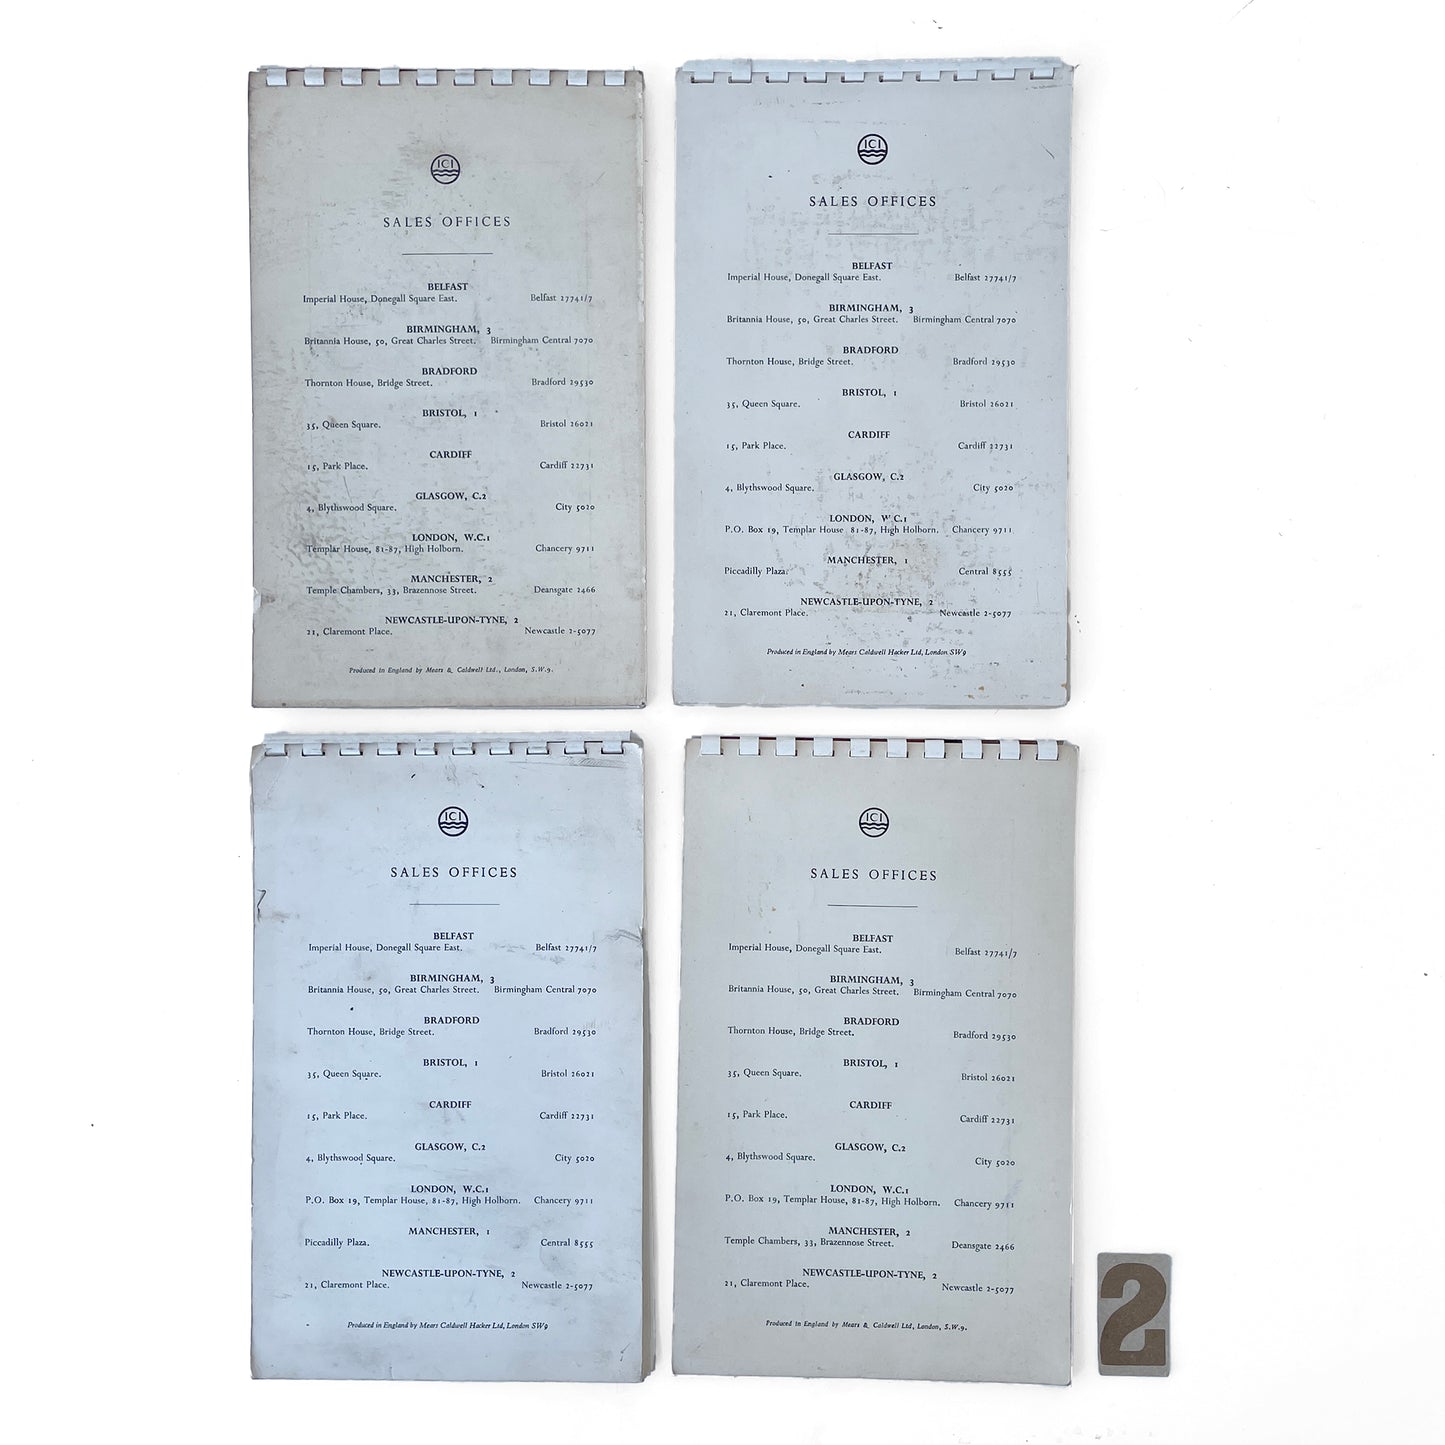 ICI
SALES OFFICES
BELFAST
Imperial House, Donegall Square East. Belfast 27741/7
BIRMINGHAM, 3
Britannia House, 50, Great Charles Street. Birmingham Central 7070
BRADFORD
Thornton House, Bridge Street. Bradford 29530
BRISTOL, 1
35, Queen Square. Bristol 26021
CARDIFF
15, Park Place. Cardiff 22731
GLASGOW, C.2
4, Blythswood Square. City 5020
LONDON, W.C.1
Templar House, 81-87, High Holborn. Chancery 9711
MANCHESTER, 2
Temple Chambers, 33, Brazennose Street. Deansgate 2466
NEWCASTLE-UPON-TYNE, 2
21, Claremont Place. Newcastle 2-5077
Produced in England by Mears & Caldwell Ltd., London, S.W.9.
ICI
SALES OFFICES
BELFAST
Imperial House, Donegall Square East. Belfast 27741/7
BIRMINGHAM, 3
Britannia House, 50, Great Charles Street. Birmingham Central 7070
BRADFORD
Thornton House, Bridge Street. Bradford 29530
BRISTOL, 1
35, Queen Square. Bristol 26021
CARDIFF
15, Park Place. Cardiff 22731
GLASGOW, C.2
4, Blythswood Square. City 5020
LONDON, W.C.1
P.O. Box 19, Templar House 81-87, High Holborn. Chancery 9711
MANCHESTER, 1
Piccadilly Plaza. Central 8555
NEWCASTLE-UPON-TYNE, 2
21, Claremont Place. Newcastle 2-5077
Produced in England by Mears Caldwell Hacker Ltd, London SW9
ICI
SALES OFFICES
BELFAST
Imperial House, Donegall Square East. Belfast 27741/7
BIRMINGHAM, 3
Britannia House, 50, Great Charles Street. Birmingham Central 7070
BRADFORD
Thornton House, Bridge Street. Bradford 29530
BRISTOL, 1
35, Queen Square. Bristol 26021
CARDIFF
15, Park Place. Cardiff 22731
GLASGOW, C.2
4, Blythswood Square. City 5020
LONDON, W.C.1
P.O. Box 19, Templar House, 81-87, High Holborn. Chancery 9711
MANCHESTER, 1
Piccadilly Plaza. Central 8555
NEWCASTLE-UPON-TYNE, 2
21, Claremont Place. Newcastle 2-5077
Produced in England by Mears Caldwell Hacker Ltd, London SW9
ICI
SALES OFFICES
BELFAST
Imperial House, Donegall Square East. Belfast 27741/7
BIRMINGHAM, 3
Britannia House, 50, Great Charles Street. Birmingham Central 7070
BRADFORD
Thornton House, Bridge Street. Bradford 29530
BRISTOL, 1
35, Queen Square. Bristol 26021
CARDIFF
15, Park Place. Cardiff 22731
GLASGOW, C.2
4, Blythswood Square. City 5020
LONDON, W.C.1
P.O. Box 19, Templar House, 81-87, High Holborn. Chancery 9711
MANCHESTER, 2
Temple Chambers, 33, Brazennose Street. Deansgate 2466
NEWCASTLE-UPON-TYNE, 2
21, Claremont Place. Newcastle 2-5077
Produced in England by Mears & Caldwell Ltd, London, S.W.9.
2